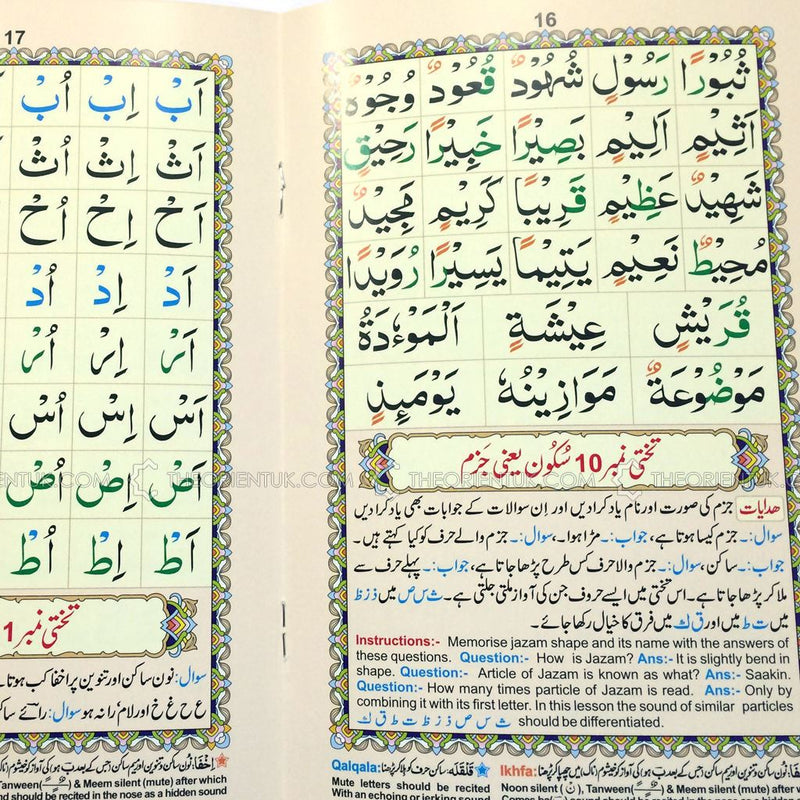 16
ثُبُوْرًا رَسُوْلٍ شُهُوْدٌ قُعُوْدٌ وُجُوْهٌ
اَثِيْمٍ اَلِيْمٍ بَصِيْرًا خَبِيْرًا رَحِيْقٍ
شَهِيْدٌ عَظِيْمٍ قَرِيْبًا كَرِيْمٍ مَجِيْدٌ
مُحِيْطٌ نَعِيْمٍ يَتِيْمًا يَسِيْرًا رُوَيْدًا
قُرَيْشٍ عِيْشَةٍ اَلْمَوْءٗدَةُ
مَوْضُوْعَةٌ مَوَازِيْنُهٗ يَوْمَئِذٍ
تختی نمبر 10 سُکُون یعنی جَزم
ھدایات جزم کی صورت اور نام یاد کرادیں اور اِن سوالات کے جوابات بھی یاد کرادیں
سوال:۔ جزم کیسا ہوتا ہے، جواب:۔ مڑا ہوا۔، سوال:۔ جزم والے حرف کو کیا کہتے ہیں۔
جواب:۔ ساکن، سوال:۔ جزم والا حرف کس طرح پڑھا جاتا ہے، جواب:۔ پہلے حرف سے
ملا کر پڑھا جاتا ہے۔ اس تختی میں ایسے حروف جن کی آواز ملتی جلتی ہے۔ ث س ص میں ذ ز ظ
میں ت ط میں اور ق ك میں فرق کا خیال رکھا جائے۔
Instructions:- Memorise jazam shape and its name with the answers of
these questions. Question:- How is Jazam? Ans:- It is slightly bend in
shape. Question:- Article of Jazam is known as what? Ans:- Saakin.
Question:- How many times particle of Jazam is read. Ans:- Only by
combining it with its first letter. In this lesson the sound of similar particles
ث س ص ذ ز ظ ت ط ق ك should be differentiated.
Qalqala: قَلْقَلَه: ساکن حرف کو ہلا کر پڑھنا
Mute letters should be recited
With an echoing or jerking sound
Ikhfa:
Noon silent (نْ), Tanween( ) & Meem silent (mute) after w
17
اَبْ اِبْ اُبْ
اَثْ اِثْ اُثْ
اَحْ اِحْ اُحْ
اَدْ اِدْ اُدْ
اَرْ اِرْ اُرْ
اَسْ اِسْ اُسْ
اَصْ اِصْ اُصْ
اَطْ اِطْ اُطْ
تختی نمبر 1
سوال: نون ساکن اور تنوین پر اخفا کب ہوتا ہے
ع ح غ خ اور لام را نہ ہو سوال: رائے ساکن
Tanween( ) & Meem silent (mute) after which
nd should be recited in the nose as a hidden sound
THEORIENTUK.COM THEORIENTUK.COM THEORIENTUK.COM